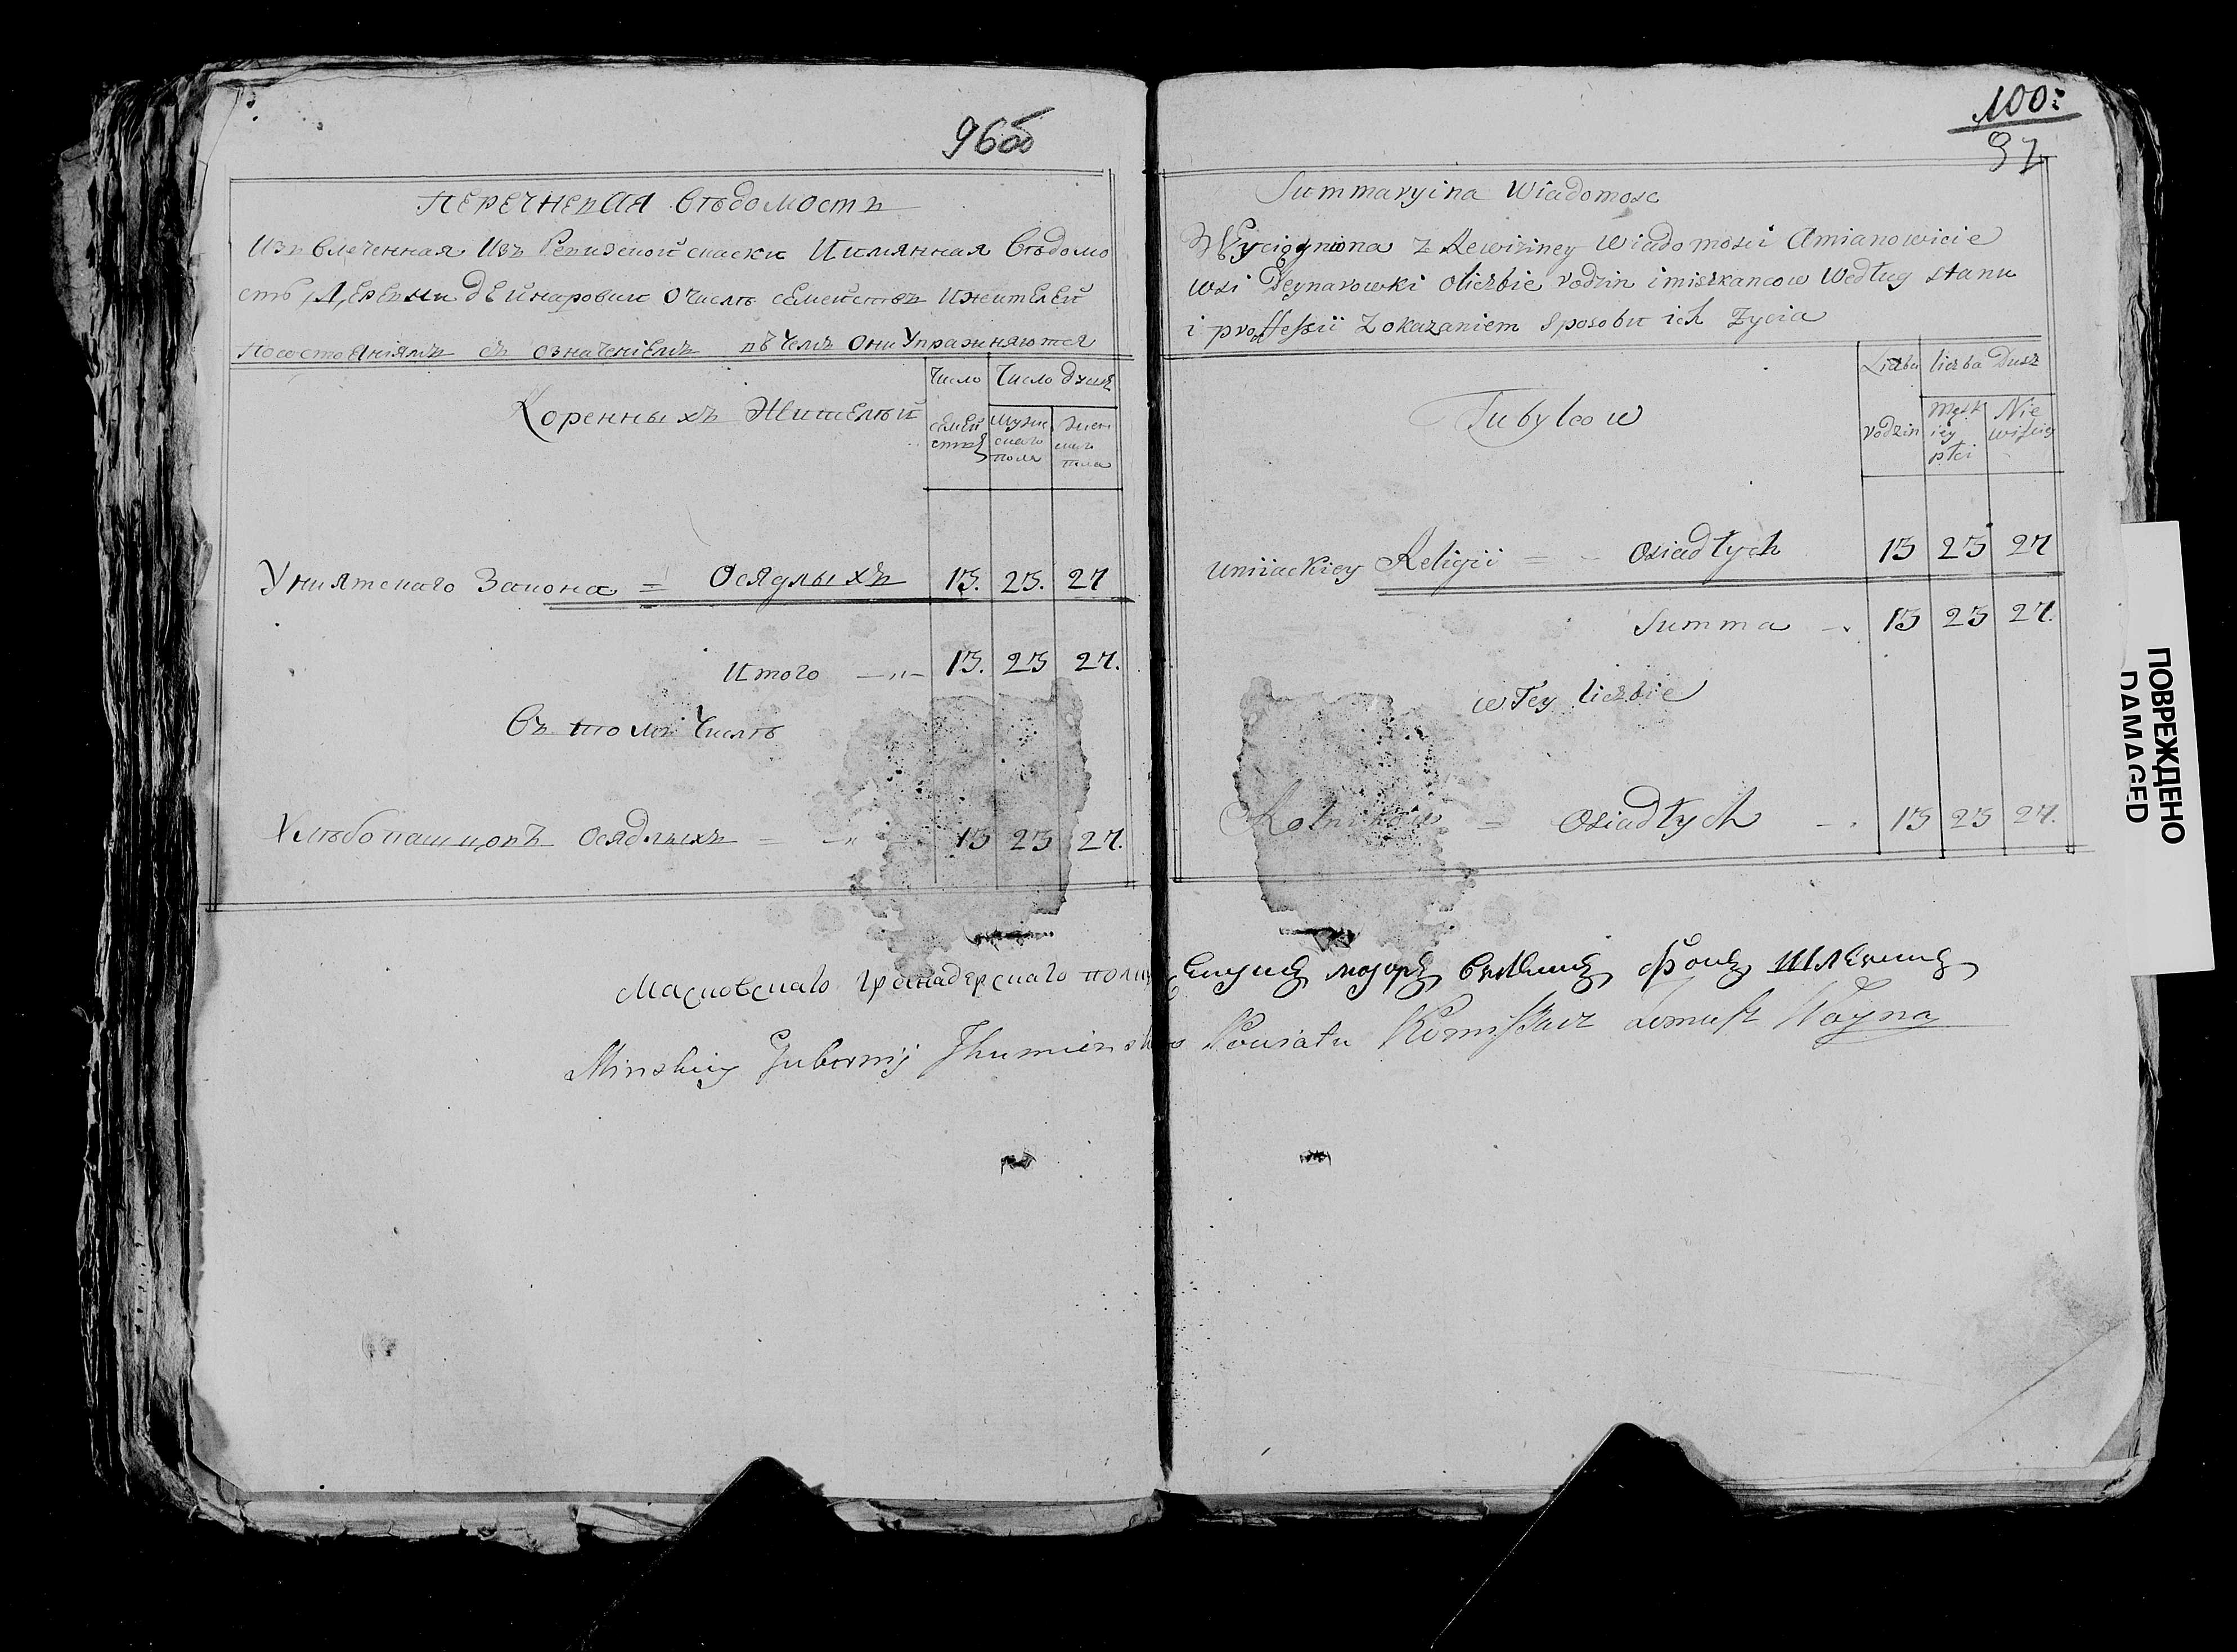 96об
ПЕРЕЧНЕВАЯ Вѣдомость
Извлеченная Изъ Ревизской скаски Имянная Вѣдомо
сть Деревни Дейнаровки О числѣ семействъ И жителей
По состояніямъ съ означеніемъ въ чемъ Они Упражняются
Коренныхъ Жителей
Число семействъ
Число душъ
мужескаго пола
женскаго пола
Униятскаго Закона = Осядлыхъ 13. 23. 27
Итого 13. 23 27.
Въ томъ Числѣ
Хлѣбопашцовъ Осядлыхъ = 13 23 27.
100
97
Summaryina Wiadomosc
Wyciągniona z Rewiziney Wiadomosci Amianowicie
Wsi Deynarowki o liczbie rodzin i miszkancow Według stanu
i proffessii z okazaniem sposobu ich Zycia
Tubylcow
Liczba rodzin
liczba Dusz
Męskiey płci
Niewisciey
uniiackiey Religii = - Osiadłych 13 23 27
Summa 13 23 27.
w Tey liczbie
Rolnikow = Osiadłych 13 23 27.
Масковскаго Гранадерскаго полку Секундъ маіоръ фонъ
Minskiey Gubernij Ihumienskiego Powiatu Komissarz Tomasz Woyna
ПОВРЕЖДЕНО
DAMAGED